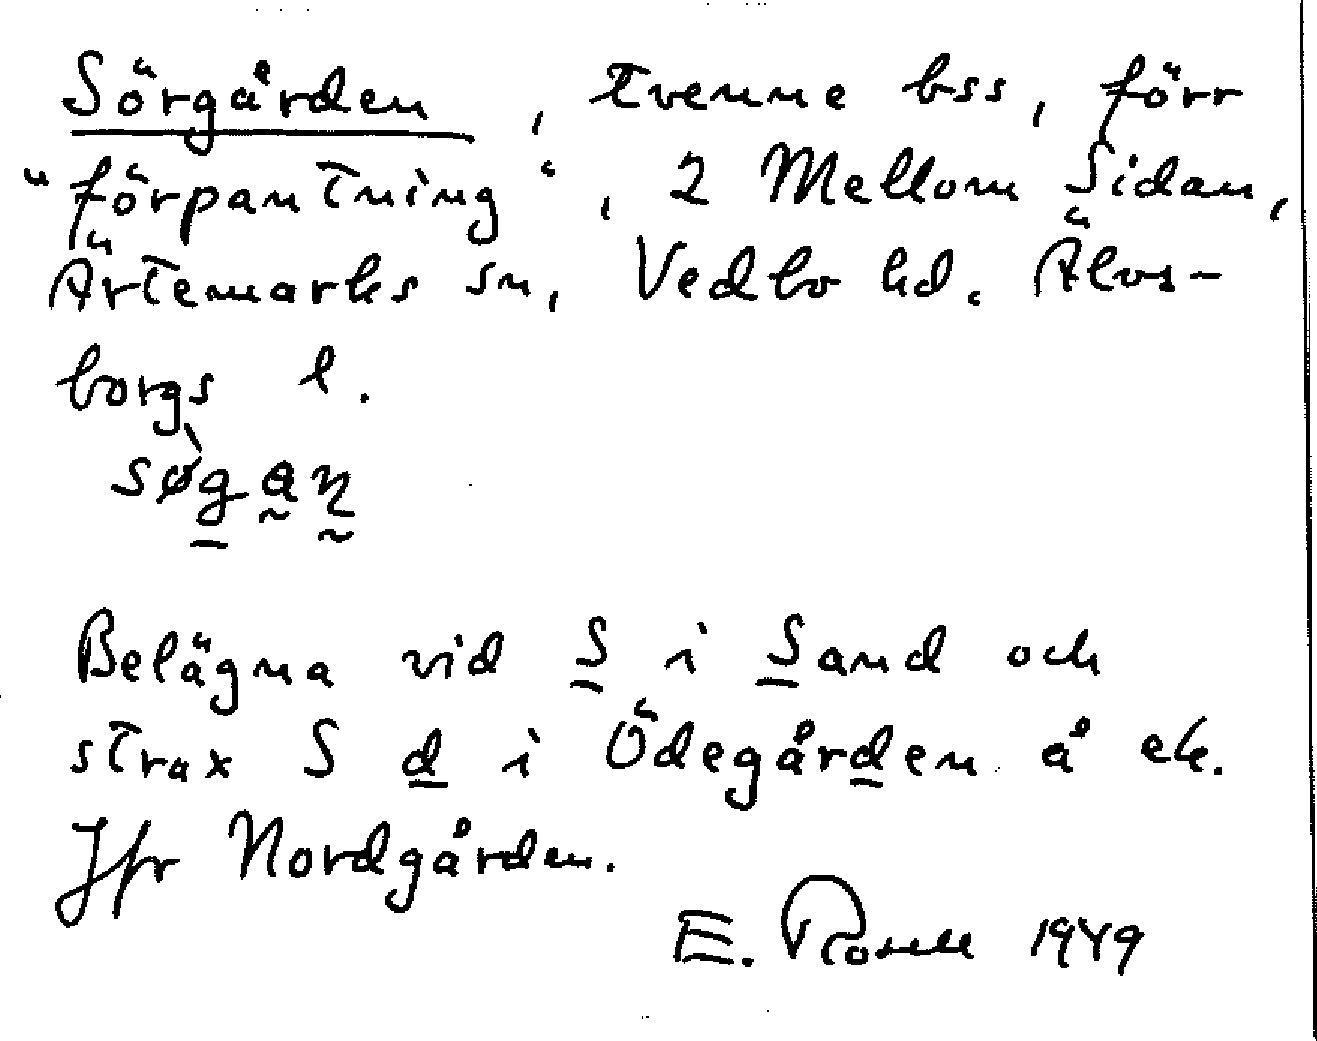 Sörgården, tvenne bss, förr
"förpantning", 2 Mellom Sidan,
Ärtemarks sn, Vedbo hd. Älvs-
borgs l.
sø̀gan
Belägna vid S i Sand och
strax S d i Ödegården å ek.
Jfr Nordgården.
E. Rosell 1949